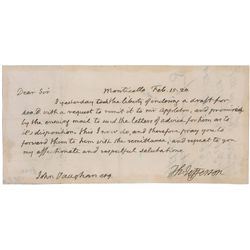 Dear Sir Monticello Feb. 15. 20.
I yesterday took the liberty of inclosing a draft for
with a request to remit it to mr Appleton, and promised
by the ensuing mail to send the letters of advice for him as to
it's disposition. this I now do, and therefore pray you to
forward them to him with the remittance, and repeat to you
my affectionate and respectful salutations.
John Vaughan esq. Th: Jefferson